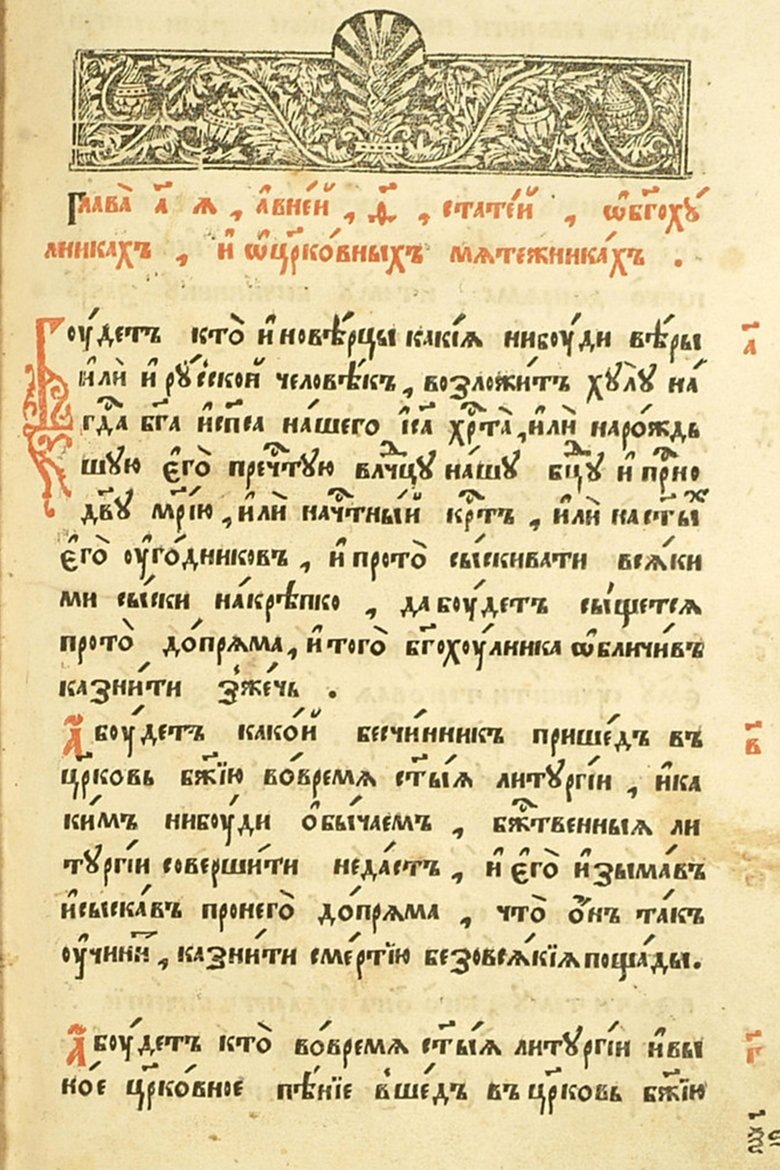 Глава̀ а҃ ѧ , а҆вне́й , ѳ҃ , стате́й , ѡ҆бг҃охꙋ́
лникахъ , и҆ ѡ҆цр҃ко́вныхъ мѧтежника́хъ .
Боу́детъ кто̀ и҆новѣ́рцы какі́ѧ нибоу́ди вѣ́ры а҃
и҆лѝ и҆ рꙋ́сской человѣ́къ , возложи́тъ хꙋлꙋ̀ на́
гдⷭ҇а бг҃а и҆сп҃са на́шего і҆са҃ хрⷭ҇та̀ , и҆лѝ наро́ждь
шую є҆го̀ пречⷭ҇тꙋю влⷣчцꙋ на́шꙋ бцⷣꙋ и҆ прⷭ҇но
дв҃ꙋ мр҃і́ю , и҆лѝ начⷭ҇тны́й крⷭ҇тъ , и҆лѝ на ст҃ы́ⷯ
є҆го̀ оу҆го́дниковъ , и҆ прото̀ сы́скивати всѧ́ки
ми сы́ски на́крѣпко , да боу́детъ сы́щетсѧ
прото̀ до́прѧма , и҆ того̀ бг҃охоу́лника ѡ҆бличи́въ
казни́ти з̾же́чь .
А҃ боу́детъ како́й бесчи́нникъ прише́дъ въ в҃
цр҃ковь бж҃їю во́времѧ ст҃ы́ѧ литꙋргі́и , и҆ ка
ки́мъ нибоу́ди ѻ҆бы́чаемъ , бжⷭ҇твенныѧ ли
тꙋргі́и соверши́ти неда́стъ , и҆ є҆го̀ и҆зыма́въ
и҆сыска́въ пронего̀ до́прѧма , что̀ ѻ҆́нъ та́къ
оу҆чини́т , казни́ти сме́ртїю безовсѧ́кїѧ поща́ды .
А҃ боу́детъ кто̀ во́времѧ ст҃ы́ѧ литꙋргі́и и҆ вы г҃
но́е цр҃ко́вное пѣ́нїе в̾ше́дъ въ цр҃ковь бж҃їю